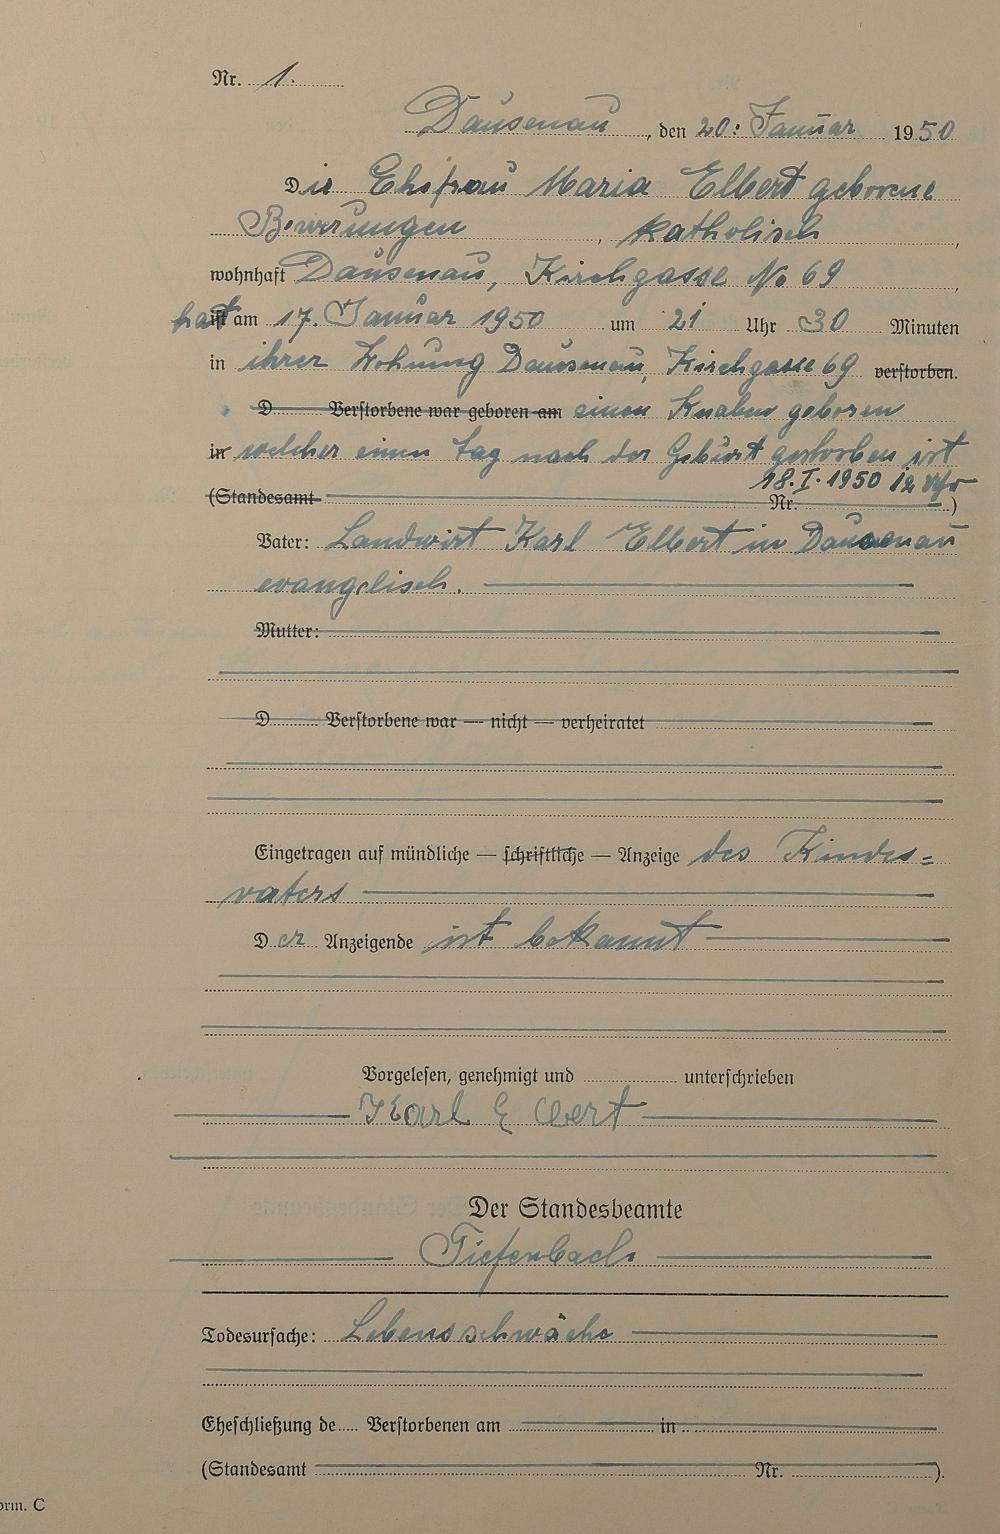 Nr. 1.
Dausenau, den 20. Januar 1950
Die Ehefrau Maria Elbert geborene
Bewerungen, katholisch,
wohnhaft Dausenau, Kirchgasse No 69,
hat ist am 17. Januar 1950 um 21 Uhr 30 Minuten
in ihrer Wohnung Dausenau, Kirchgasse 69 verstorben.
D Verstorbene war geboren am einen Knaben geboren
in welcher einen Tag nach der Geburt gestorben ist
18.I.1950 12 Uhr
(Standesamt Nr. )
Vater: Landwirt Karl Elbert in Dausenau
evangelisch.
Mutter:
D Verstorbene war — nicht — verheiratet
Eingetragen auf mündliche — schriftliche — Anzeige des Kindes=
vaters
Der Anzeigende ist bekannt
Vorgelesen, genehmigt und unterschrieben
Karl Elbert
Der Standesbeamte
Tiefenbach
Todesursache: Lebensschwäche
Eheschließung de Verstorbenen am in
(Standesamt Nr. ).
orm. C